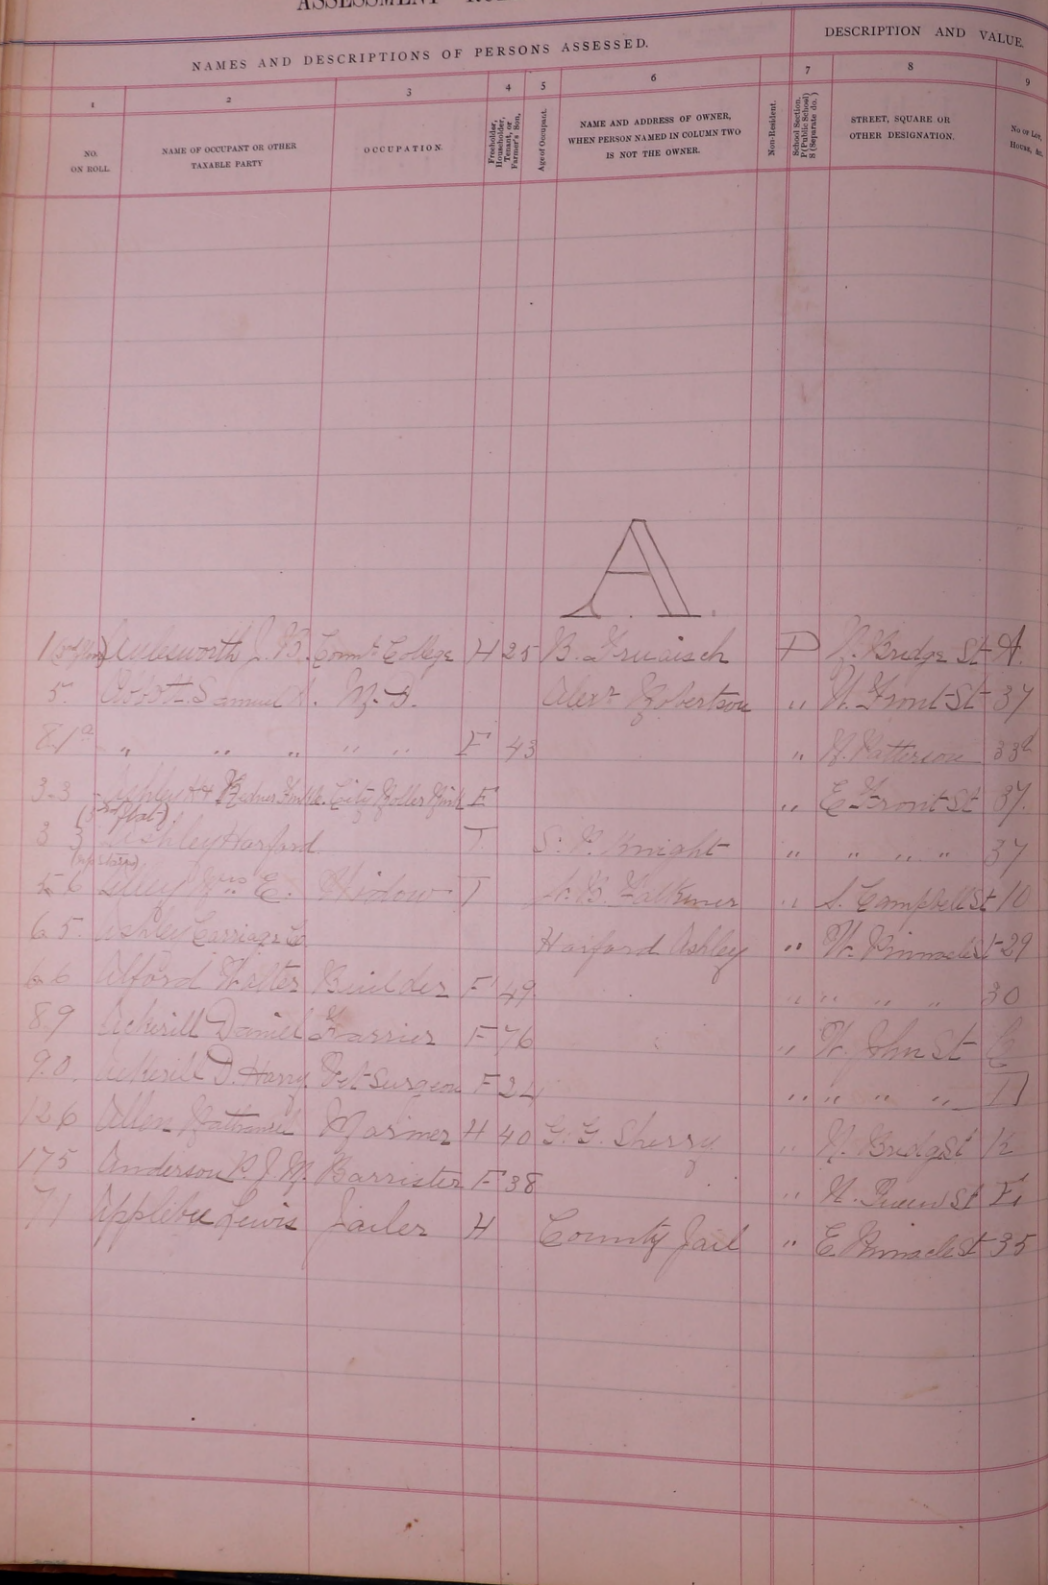 ASSESSMENT
NAMES AND DESCRIPTIONS OF PERSONS ASSESSED.
DESCRIPTION AND VALUE.
1 2 3 4 5 6 7 8 9
NO. ON ROLL.
NAME OF OCCUPANT OR OTHER TAXABLE PARTY
OCCUPATION.
Freeholder, Householder, Tenant, or Farmer's Son.
Age of Occupant.
NAME AND ADDRESS OF OWNER, WHEN PERSON NAMED IN COLUMN TWO IS NOT THE OWNER.
Non-Resident.
School Section. P (Public School) S (Separate do.)
STREET, SQUARE OR OTHER DESIGNATION.
No or Lot, House, &c.
A.
1 J. B. Comt College H 25 B. P N. Bridge St A.
5. Abbott Samuel M.D. Alexr Robertson " W. Front St 37
" " " " " F 43 " W. Patterson 33
33 Ashley City Roller Rink F " E Front St 37.
33 Ashley Harford T S. P. Knight " " " " 37
(upstairs)
56 Mrs E. Widow T Falkiner " S. Campbell St 10
65. Ashley Carriage Co Harford Ashley " W. Pinnacle St 29
66 Alford Walter Builder F 49 " " " " 30
89 Ackerill Daniel Farrier F 76 " W. John St
90. Ackerill D. Harry Vet Surgeon F 24 " " " " 17
126 Allen Nathaniel Mariner H 40 G. G. Sherry " N. Bridge St
175 Anderson P. J. M. Barrister F 38 " N. Queen St
71 Applebee Lewis Jailer H County Jail " E. Pinnacle St 35